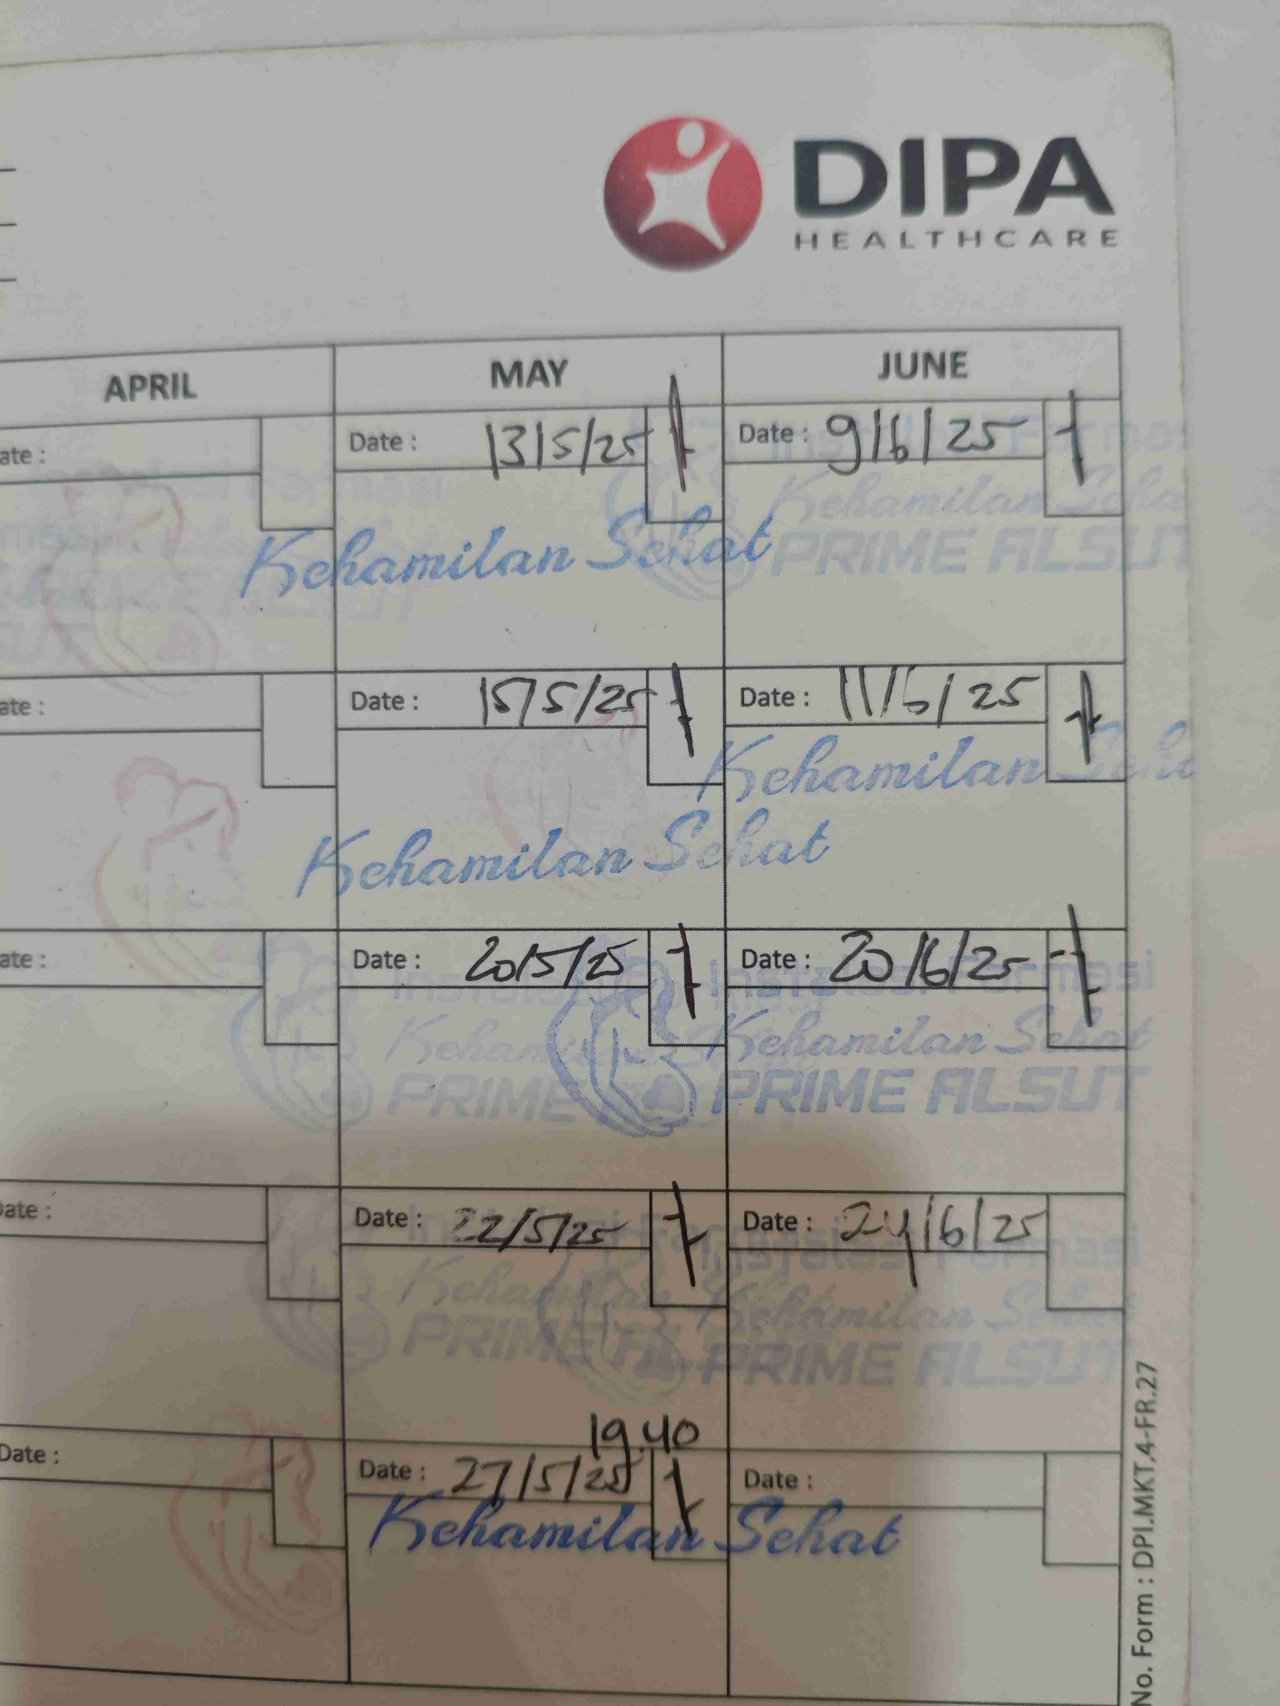 DIPA
HEALTHCARE
APRIL MAY JUNE
ate : Date : 13/5/25 Date : 9/6/25
Kehamilan Sehat
Kehamilan Seha
PRIME ALSUT
ate : Date : 15/5/25 Date : 11/6/25
Kehamilan Seha
Kehamilan Sehat
ate : Date : 20/5/25 Date : 20/6/25
Instalasi Formasi
Kehamilan Kehamilan Sehat
PRIME PRIME ALSUT
Date : Date : 22/5/25 Date : 24/6/25
Instalasi Formasi
Kehamilan Kehamilan Sehat
PRIME AL PRIME ALSUT
19.40
Date : Date : 27/5/25 Date :
Kehamilan Sehat
No. Form : DPI.MKT.4-FR.27